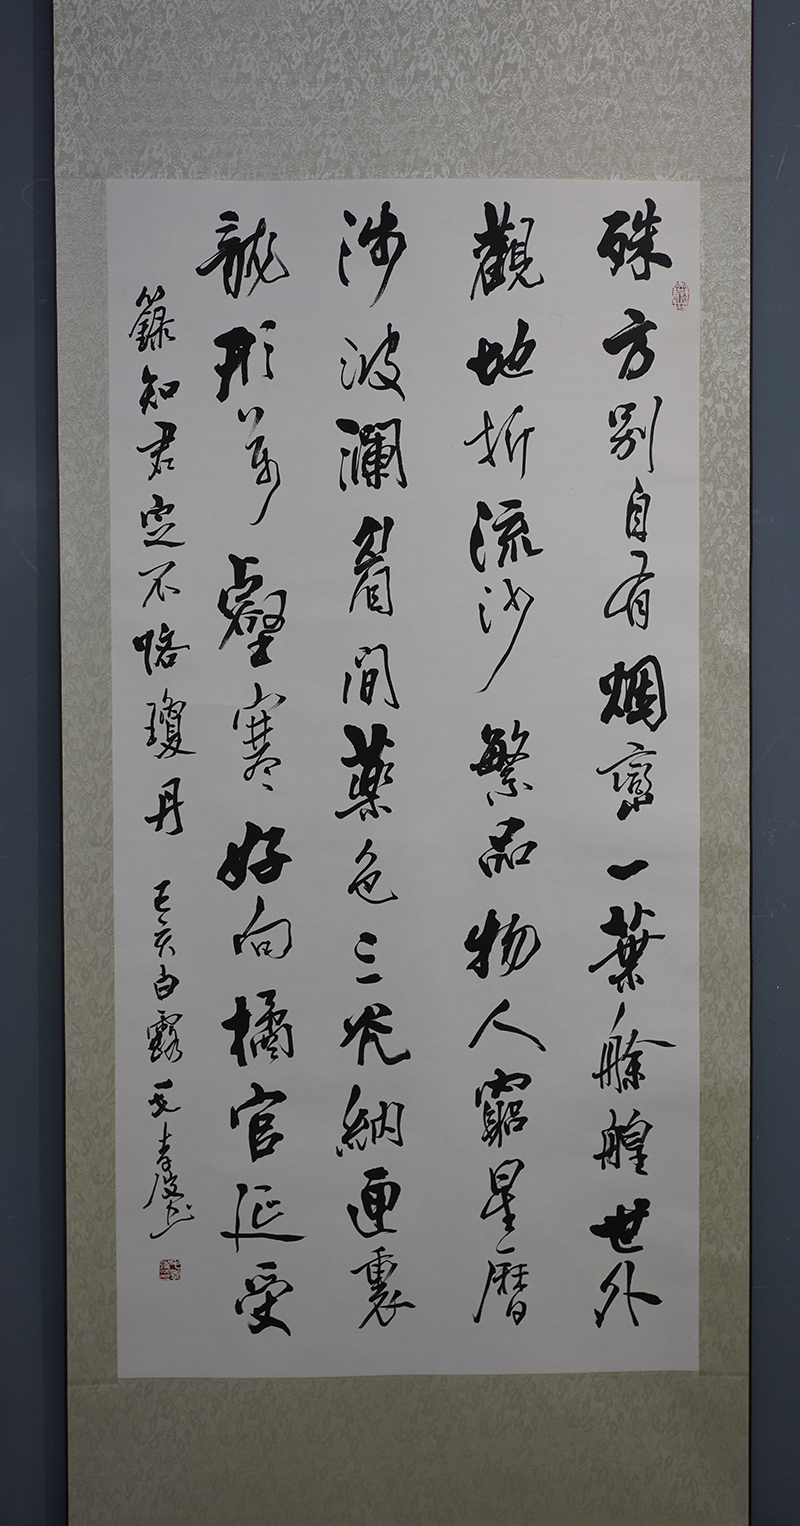 殊方別自有烟霞一葉艅艎世外
觀地折流沙繁品物人窮星曆
涉波瀾眉間藥色三光納匣裏
龍形萬壑寒好向橘官延受
籙知君定不悋瓊丹 己亥白露